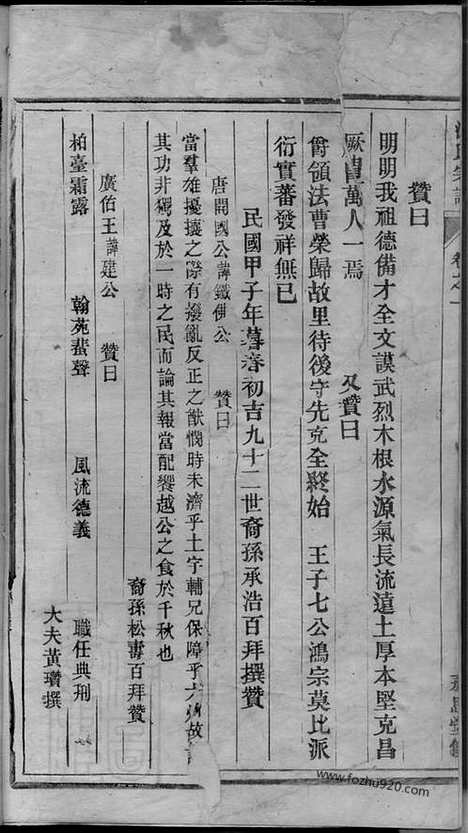 贊曰
明明我祖德備才全文謨武烈木根水源氣長流遠土厚本堅克昌
厥 萬人一焉 又贊曰
爵領法曹榮歸故里待後守先克全終始 王子七公鴻宗莫比派
衍實蕃發祥無已
民國甲子年暮春初吉九十二世裔孫承浩百拜撰贊
唐開國公諱鐵佛公 贊曰
當羣雄擾攘之際有撥亂反正之猷憫時未濟乎土宇輔兄保障乎六州故
其功非獨及於一時之民而論其報當配饗越公之食於千秋也
裔孫松壽百拜贊
廣伯王諱建公 贊曰
柏臺霜露 翰苑蜚聲 風流德義 職任典刑
大夫黃瓚撰
卷之一
www.fozhu920.com